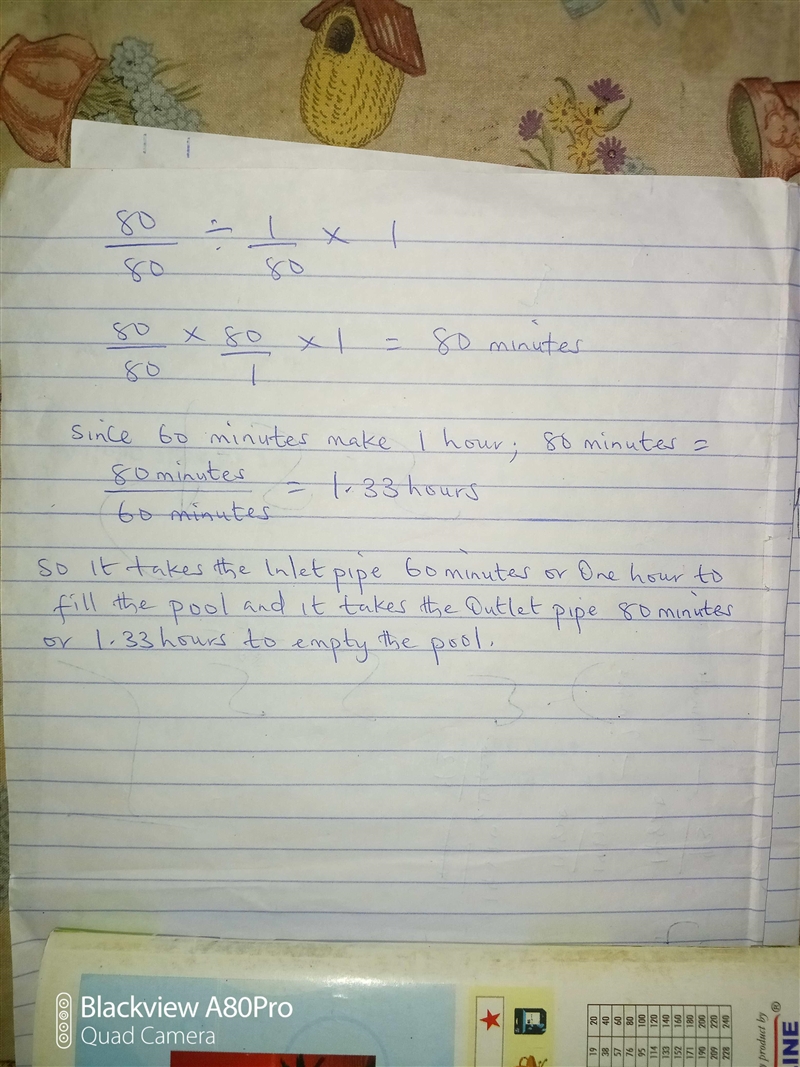 80/80 ÷ 1/80 × 1
80/80 × 80/1 × 1 = 80 minutes
Since 60 minutes make 1 hour; 80 minutes =
80 minutes/60 minutes = 1.33 hours
So it takes the Inlet pipe 60 minutes or One hour to
fill the pool and it takes the Outlet pipe 80 minutes
or 1.33 hours to empty the pool.
Blackview A80Pro
Quad Camera
20 40 60 80 100 120 140 160 180 200 220 240
19 38 57 76 95 114 133 152 171 190 209 228
product by
INE
®